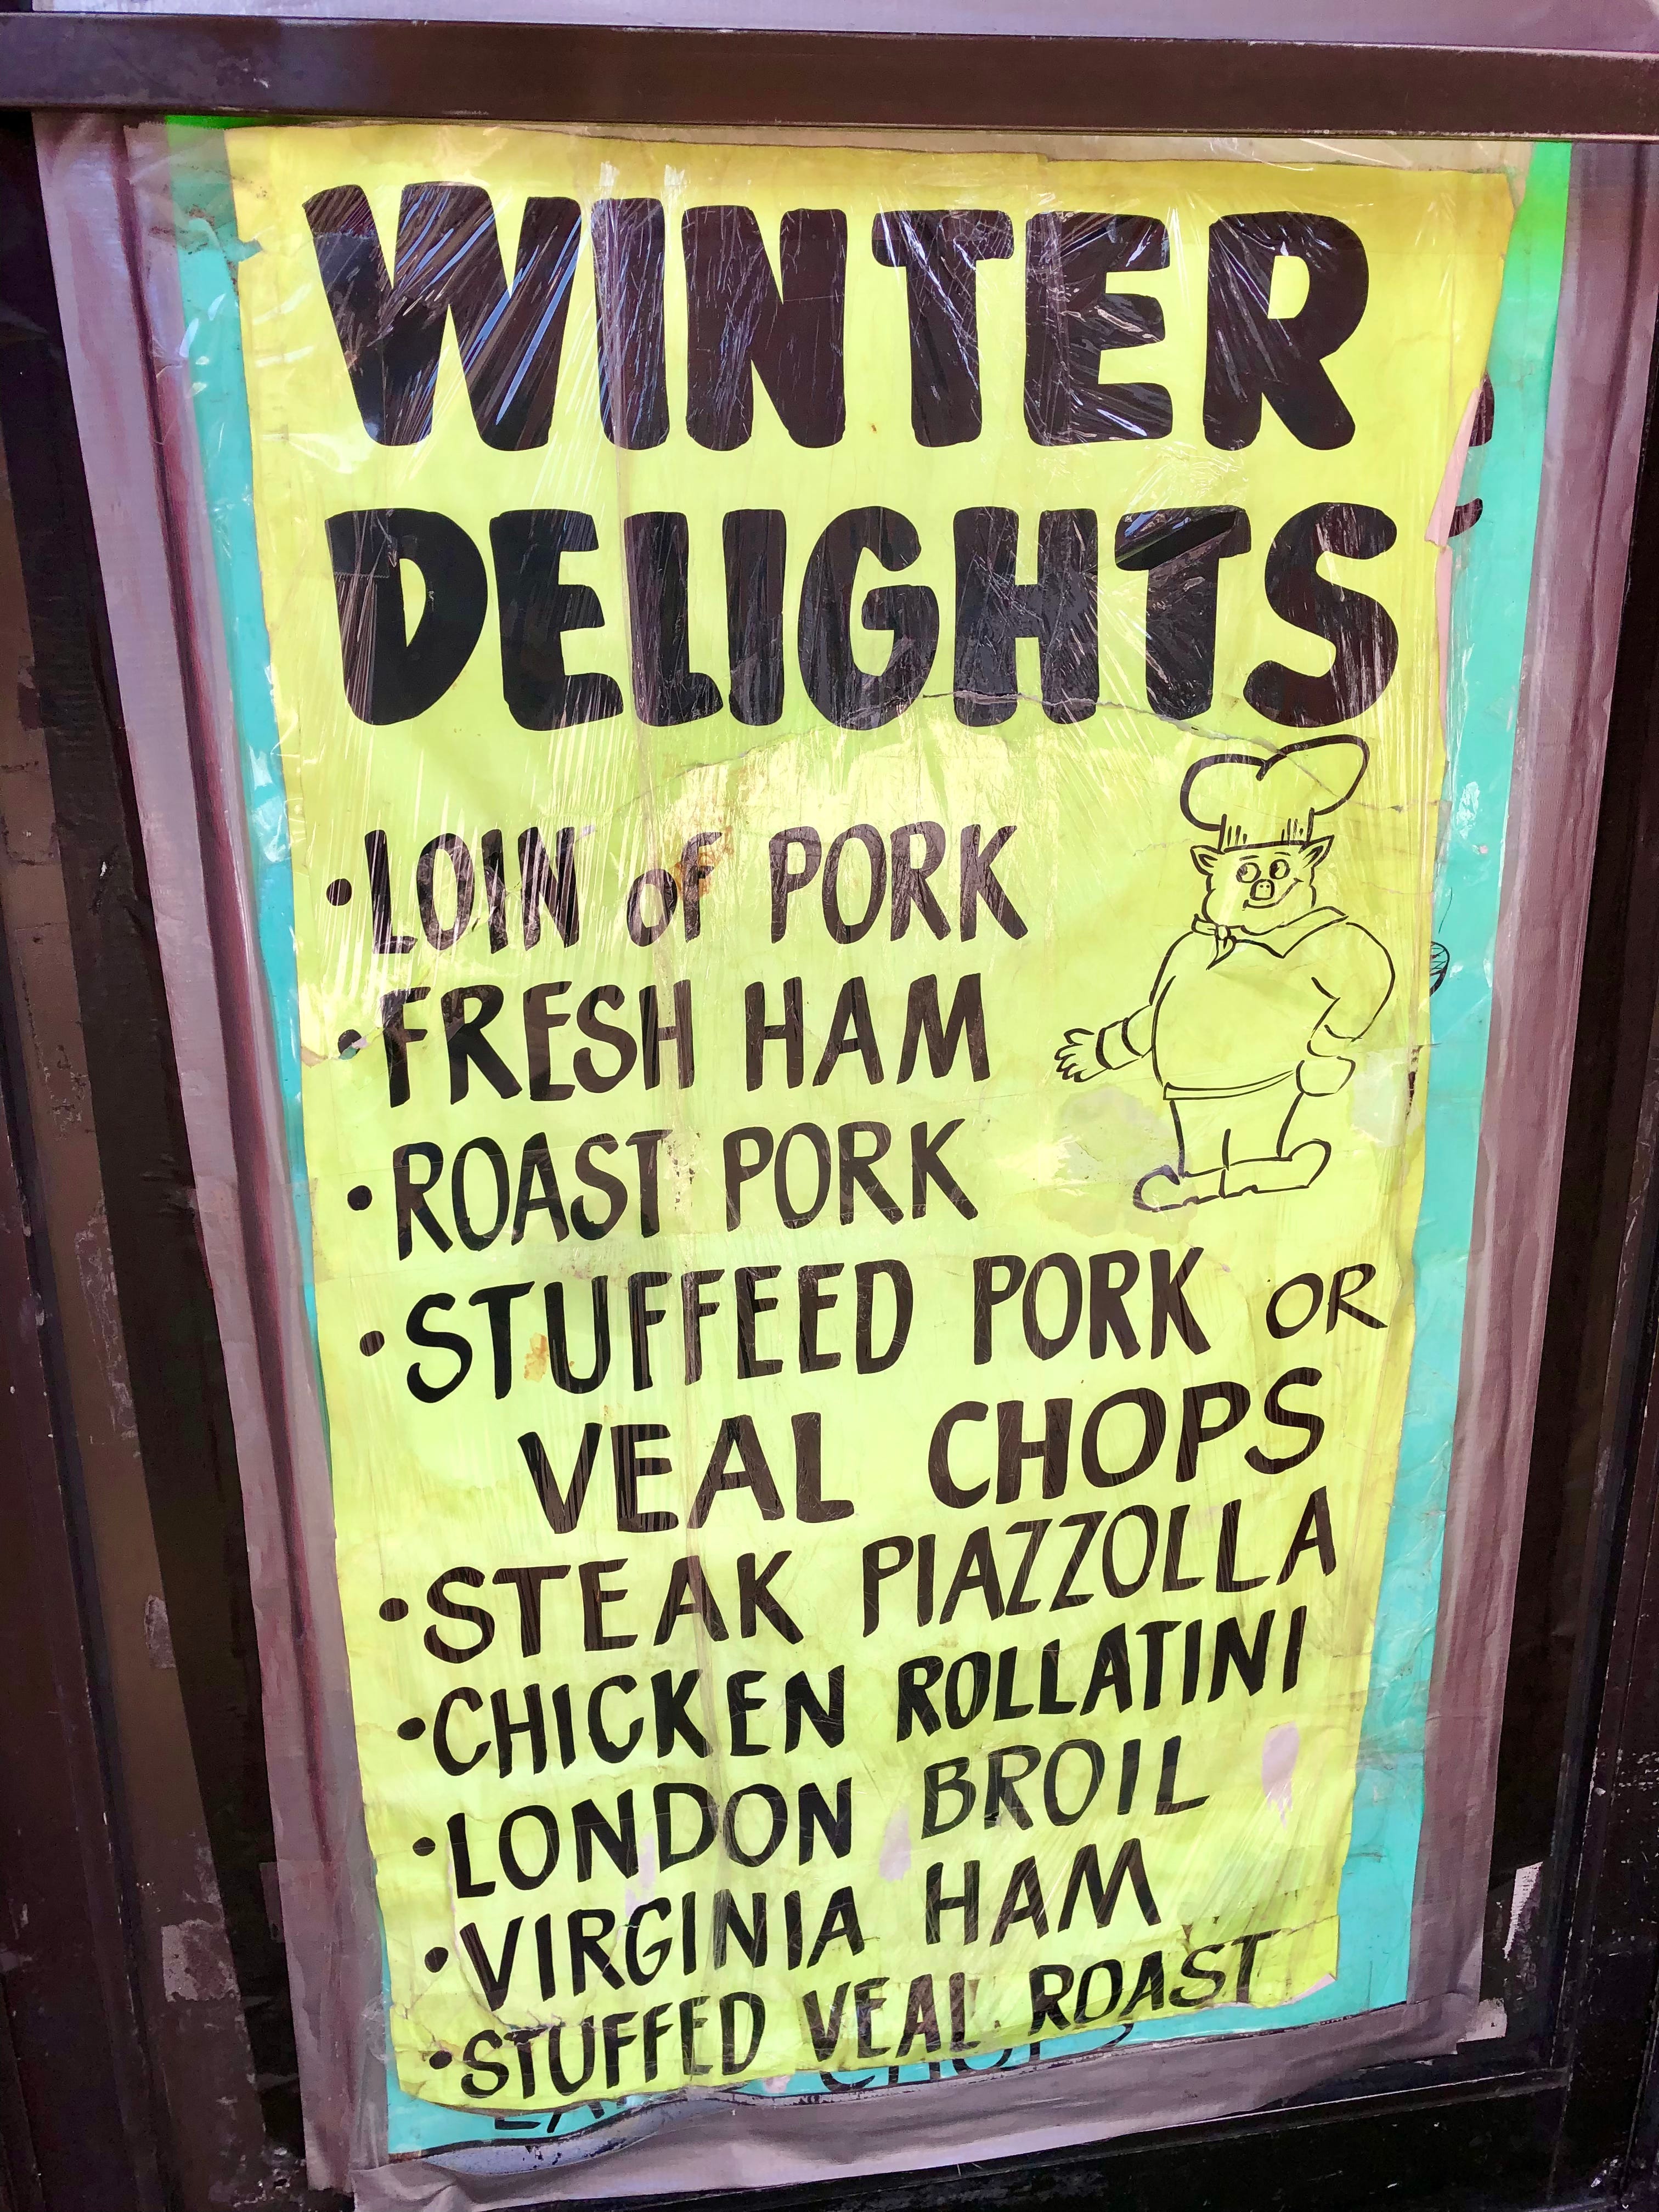 WINTER
DELIGHTS
• LOIN oF PORK
• FRESH HAM
• ROAST PORK
• STUFFEED PORK OR
VEAL CHOPS
• STEAK PIAZZOLLA
• CHICKEN ROLLATINI
• LONDON BROIL
• VIRGINIA HAM
• STUFFED VEAL ROAST
CHOPS